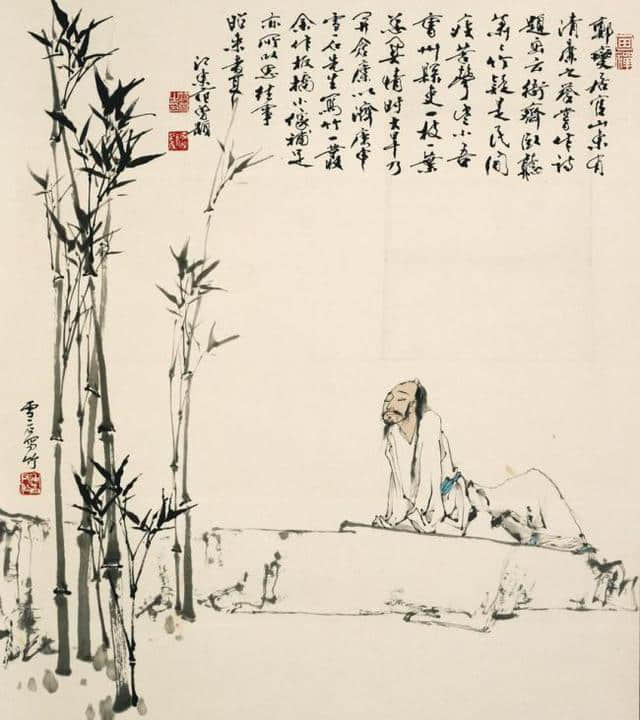 鄭燮居官山東有
清廉之譽嘗作詩
題畫云衙齋臥聽
蕭々竹疑是民間
疾苦聲些小吾
曹州縣吏一枝一葉
總關情時大旱乃
開倉廩以濟庚申
雪石先生寫竹一叢
余作板橋小像補足
亦所以思往事
昭來者耳
江東范曾題
雪石寫竹